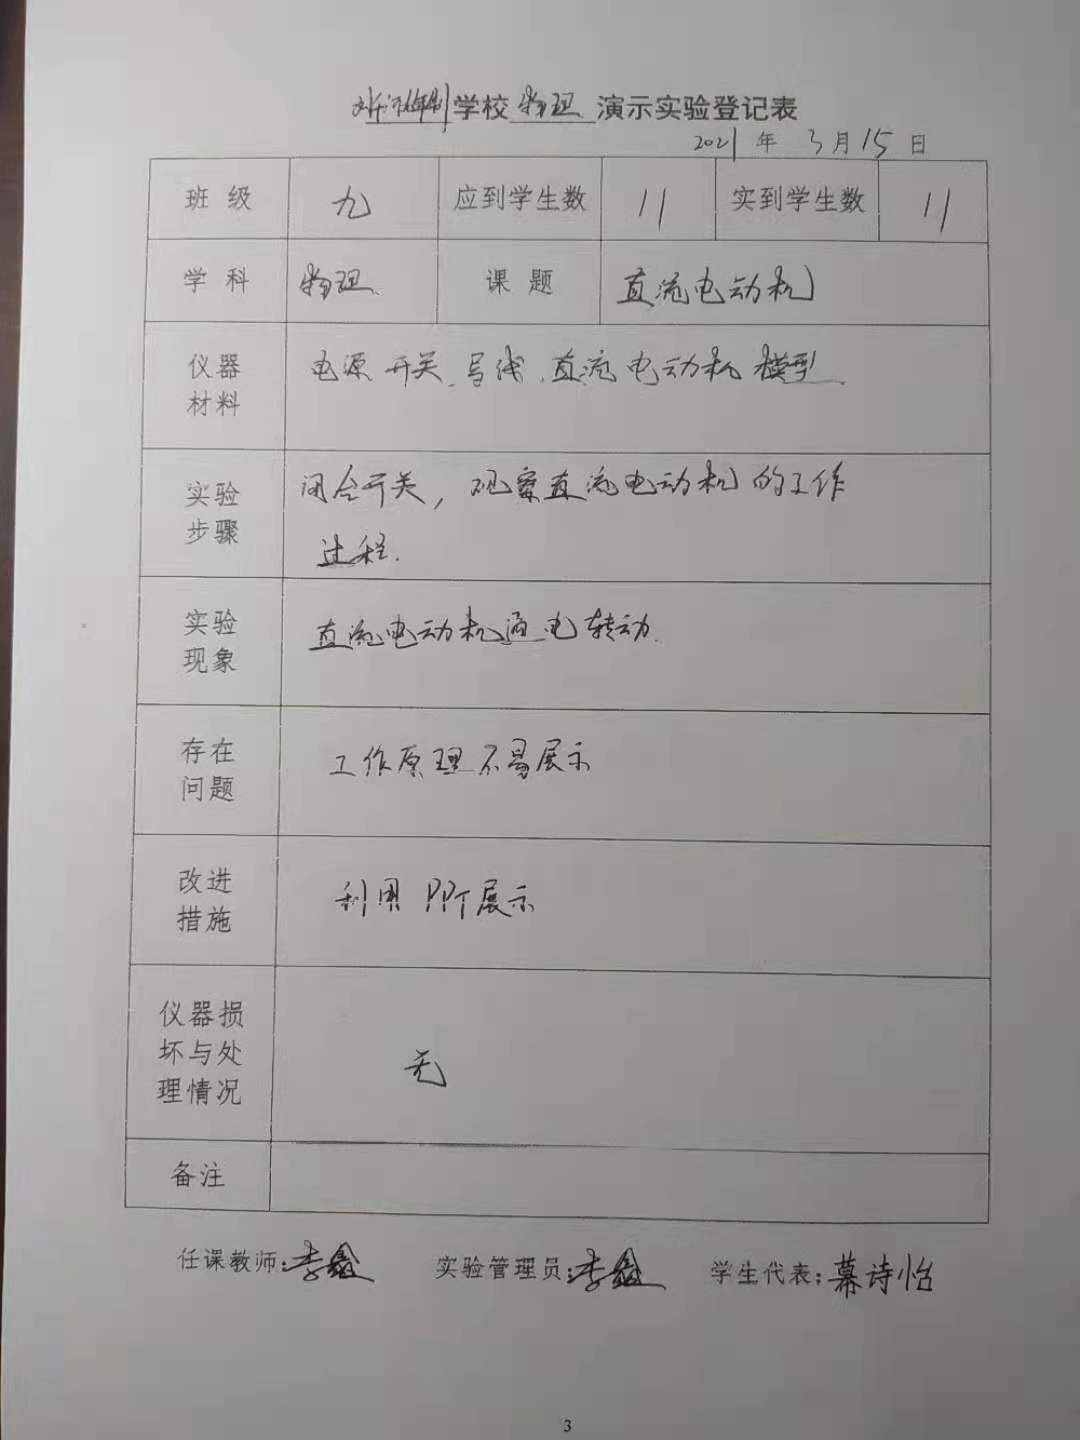 学校 物理 演示实验登记表
2021 年 3月15日
班级 九 应到学生数 11 实到学生数 11
学科 物理. 课题 直流电动机
仪器
材料
电源 开关.导线.直流电动机模型.
实验
步骤
闭合开关，观察直流电动机的工作
过程.
实验
现象
直流电动机通电转动.
存在
问题
工作原理不易展示
改进
措施
利用PPT展示
仪器损
坏与处
理情况
无
备注
任课教师:李鑫 实验管理员:李鑫 学生代表:幕诗怡
3